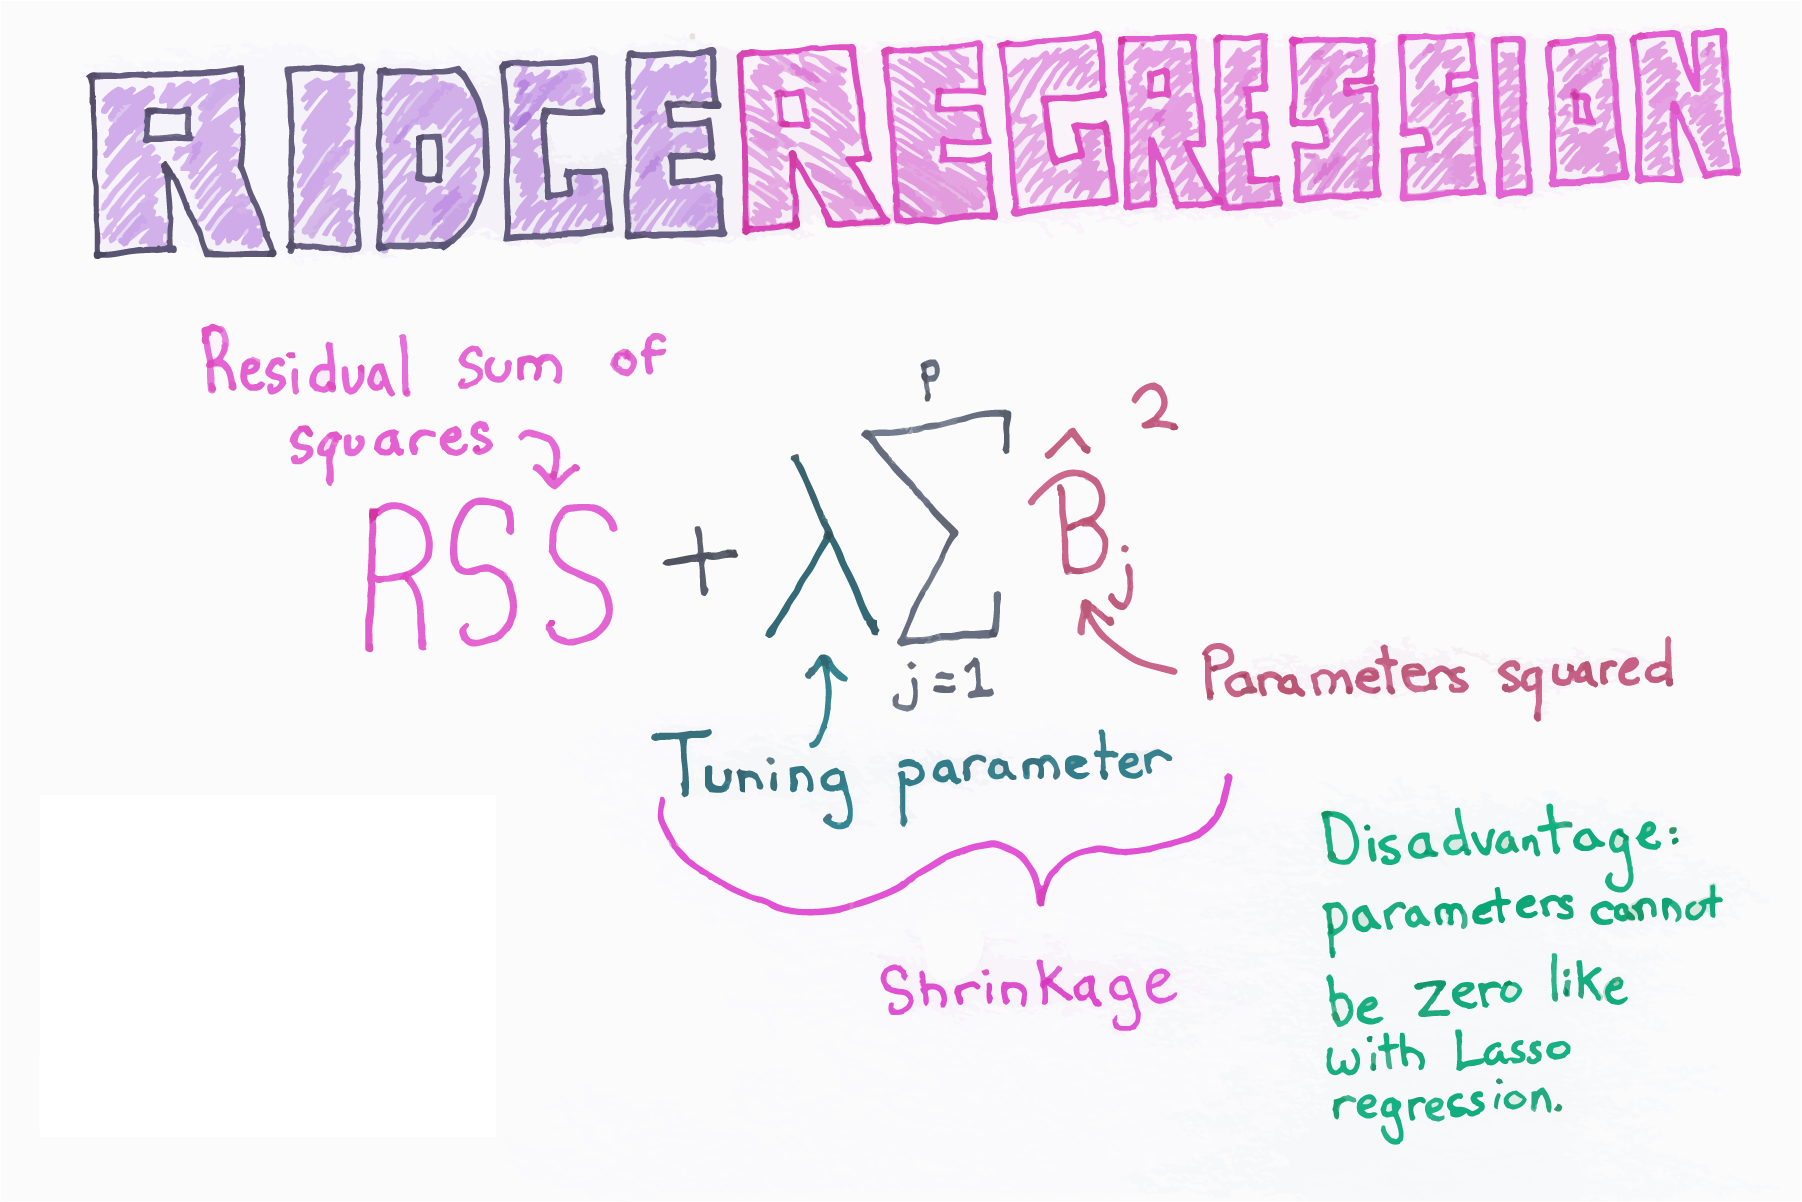 RIDGE REGRESSION
Residual sum of
squares
p
RSS + λ Σ B̂ⱼ²
j=1
Parameters squared
Tuning parameter
Shrinkage
Disadvantage:
parameters cannot
be zero like
with Lasso
regression.